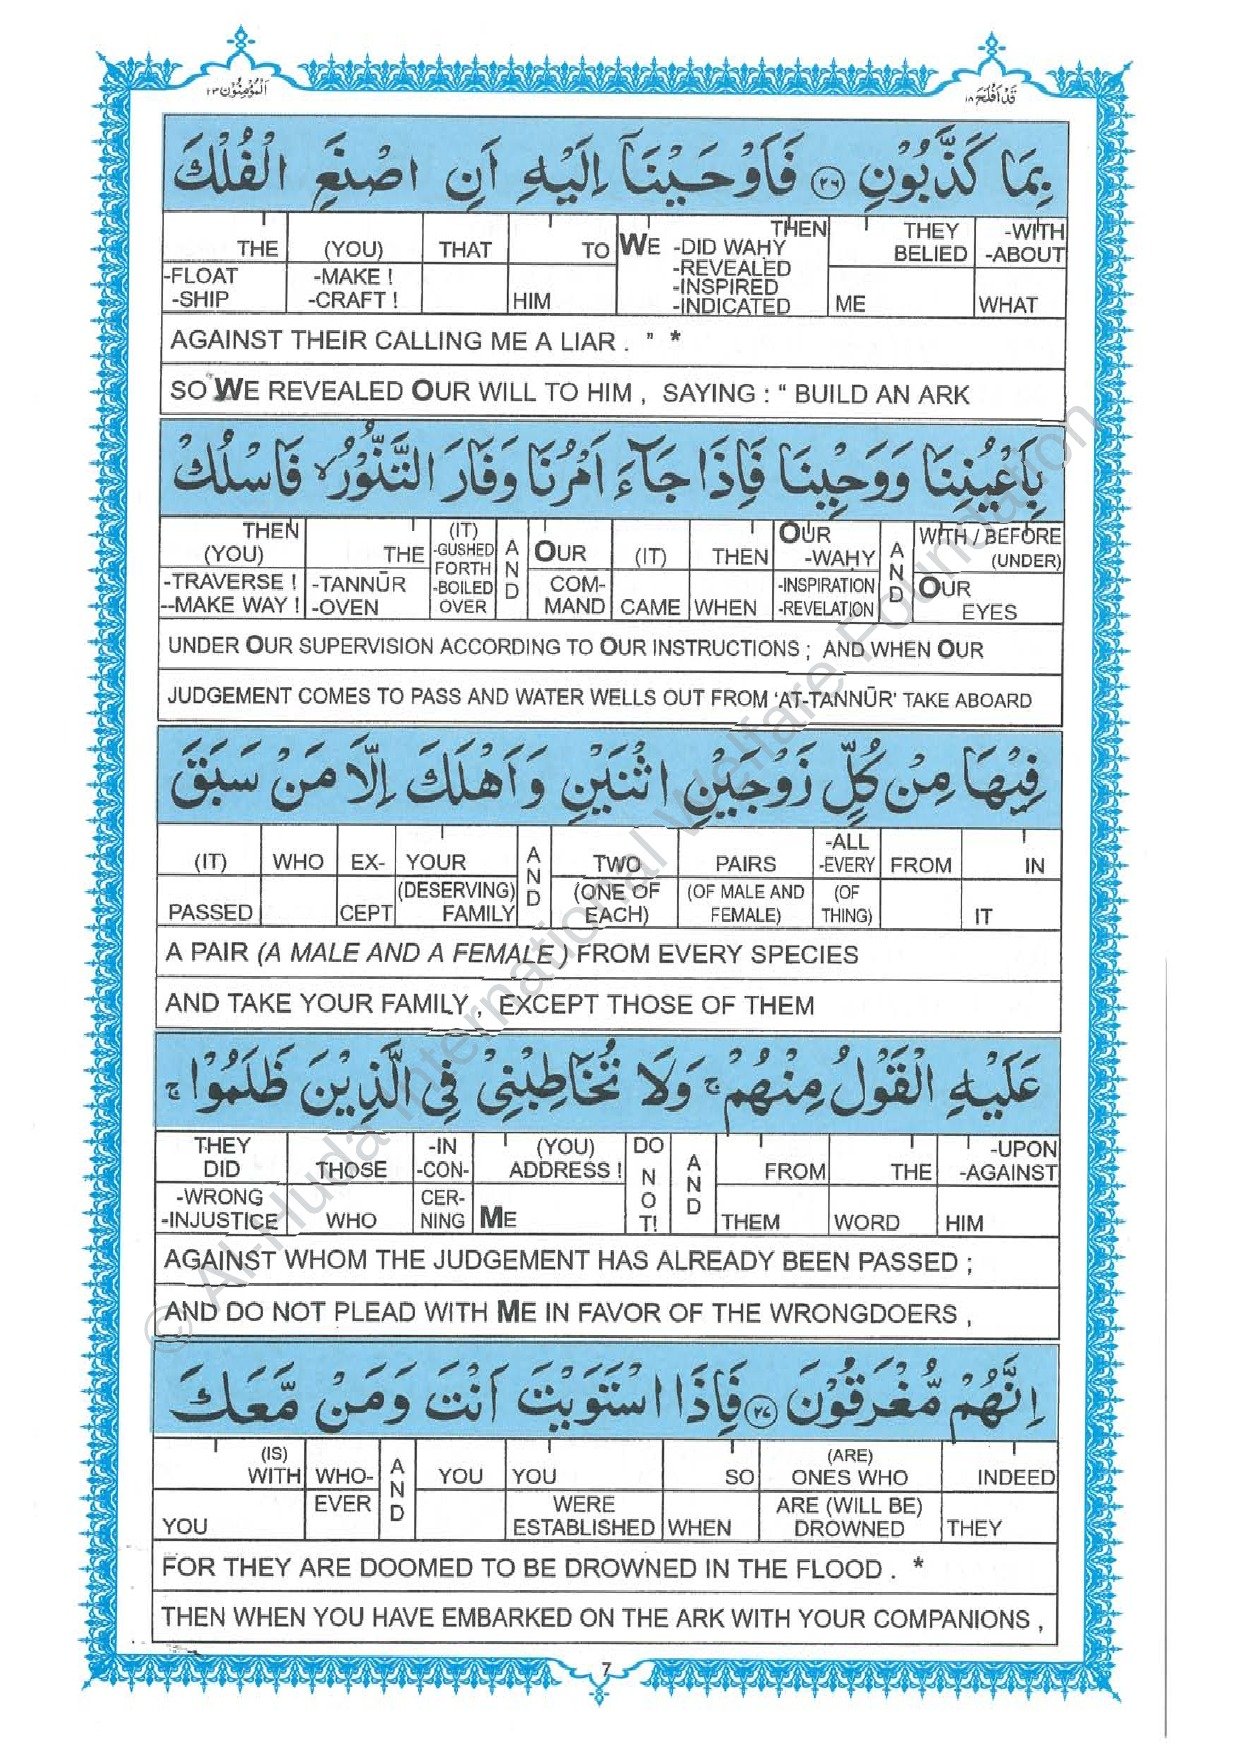 المؤمنون ٢٣
قد افلح ١٨
بِمَا كَذَّبُوْنِ ٢٦ فَاَوْحَيْنَآ اِلَيْهِ اَنِ اصْنَعِ الْفُلْكَ
THE (YOU) THAT TO WE -DID WAHY THEN THEY BELIED -WITH -ABOUT
-FLOAT -SHIP -MAKE ! -CRAFT ! HIM -REVEALED -INSPIRED -INDICATED ME WHAT
AGAINST THEIR CALLING ME A LIAR . " *
SO WE REVEALED OUR WILL TO HIM , SAYING : " BUILD AN ARK
بِاَعْيُنِنَا وَوَحْيِنَا فَاِذَا جَآءَ اَمْرُنَا وَفَارَ التَّنُّوْرُ ۙ فَاسْلُكْ
THEN (YOU) THE (IT) -GUSHED FORTH AND OUR (IT) THEN OUR -WAHY AND WITH / BEFORE (UNDER)
-TRAVERSE ! --MAKE WAY ! -TANNŪR -OVEN -BOILED OVER COM- MAND CAME WHEN -INSPIRATION -REVELATION OUR EYES
UNDER OUR SUPERVISION ACCORDING TO OUR INSTRUCTIONS ; AND WHEN OUR
JUDGEMENT COMES TO PASS AND WATER WELLS OUT FROM 'AT-TANNŪR' TAKE ABOARD
فِيْهَا مِنْ كُلٍّ زَوْجَيْنِ اثْنَيْنِ وَاَهْلَكَ اِلَّا مَنْ سَبَقَ
(IT) WHO EX- YOUR AND TWO PAIRS -ALL -EVERY FROM IN
PASSED CEPT (DESERVING) FAMILY (ONE OF EACH) (OF MALE AND FEMALE) (OF THING) IT
A PAIR (A MALE AND A FEMALE) FROM EVERY SPECIES
AND TAKE YOUR FAMILY , EXCEPT THOSE OF THEM
عَلَيْهِ الْقَوْلُ مِنْهُمْ ۚ وَلَا تُخَاطِبْنِيْ فِي الَّذِيْنَ ظَلَمُوْا ۚ
THEY DID THOSE -IN -CON- (YOU) ADDRESS ! DO NOT! AND FROM THE -UPON -AGAINST
-WRONG -INJUSTICE WHO CER- NING ME THEM WORD HIM
AGAINST WHOM THE JUDGEMENT HAS ALREADY BEEN PASSED ;
AND DO NOT PLEAD WITH ME IN FAVOR OF THE WRONGDOERS ,
اِنَّهُمْ مُّغْرَقُوْنَ ٢٧ فَاِذَا اسْتَوَيْتَ اَنْتَ وَمَنْ مَّعَكَ
(IS) WITH WHO- AND YOU YOU SO (ARE) ONES WHO INDEED
YOU EVER WERE ESTABLISHED WHEN ARE (WILL BE) DROWNED THEY
FOR THEY ARE DOOMED TO BE DROWNED IN THE FLOOD . *
THEN WHEN YOU HAVE EMBARKED ON THE ARK WITH YOUR COMPANIONS ,
7
© Al-Huda International Welfare Foundation